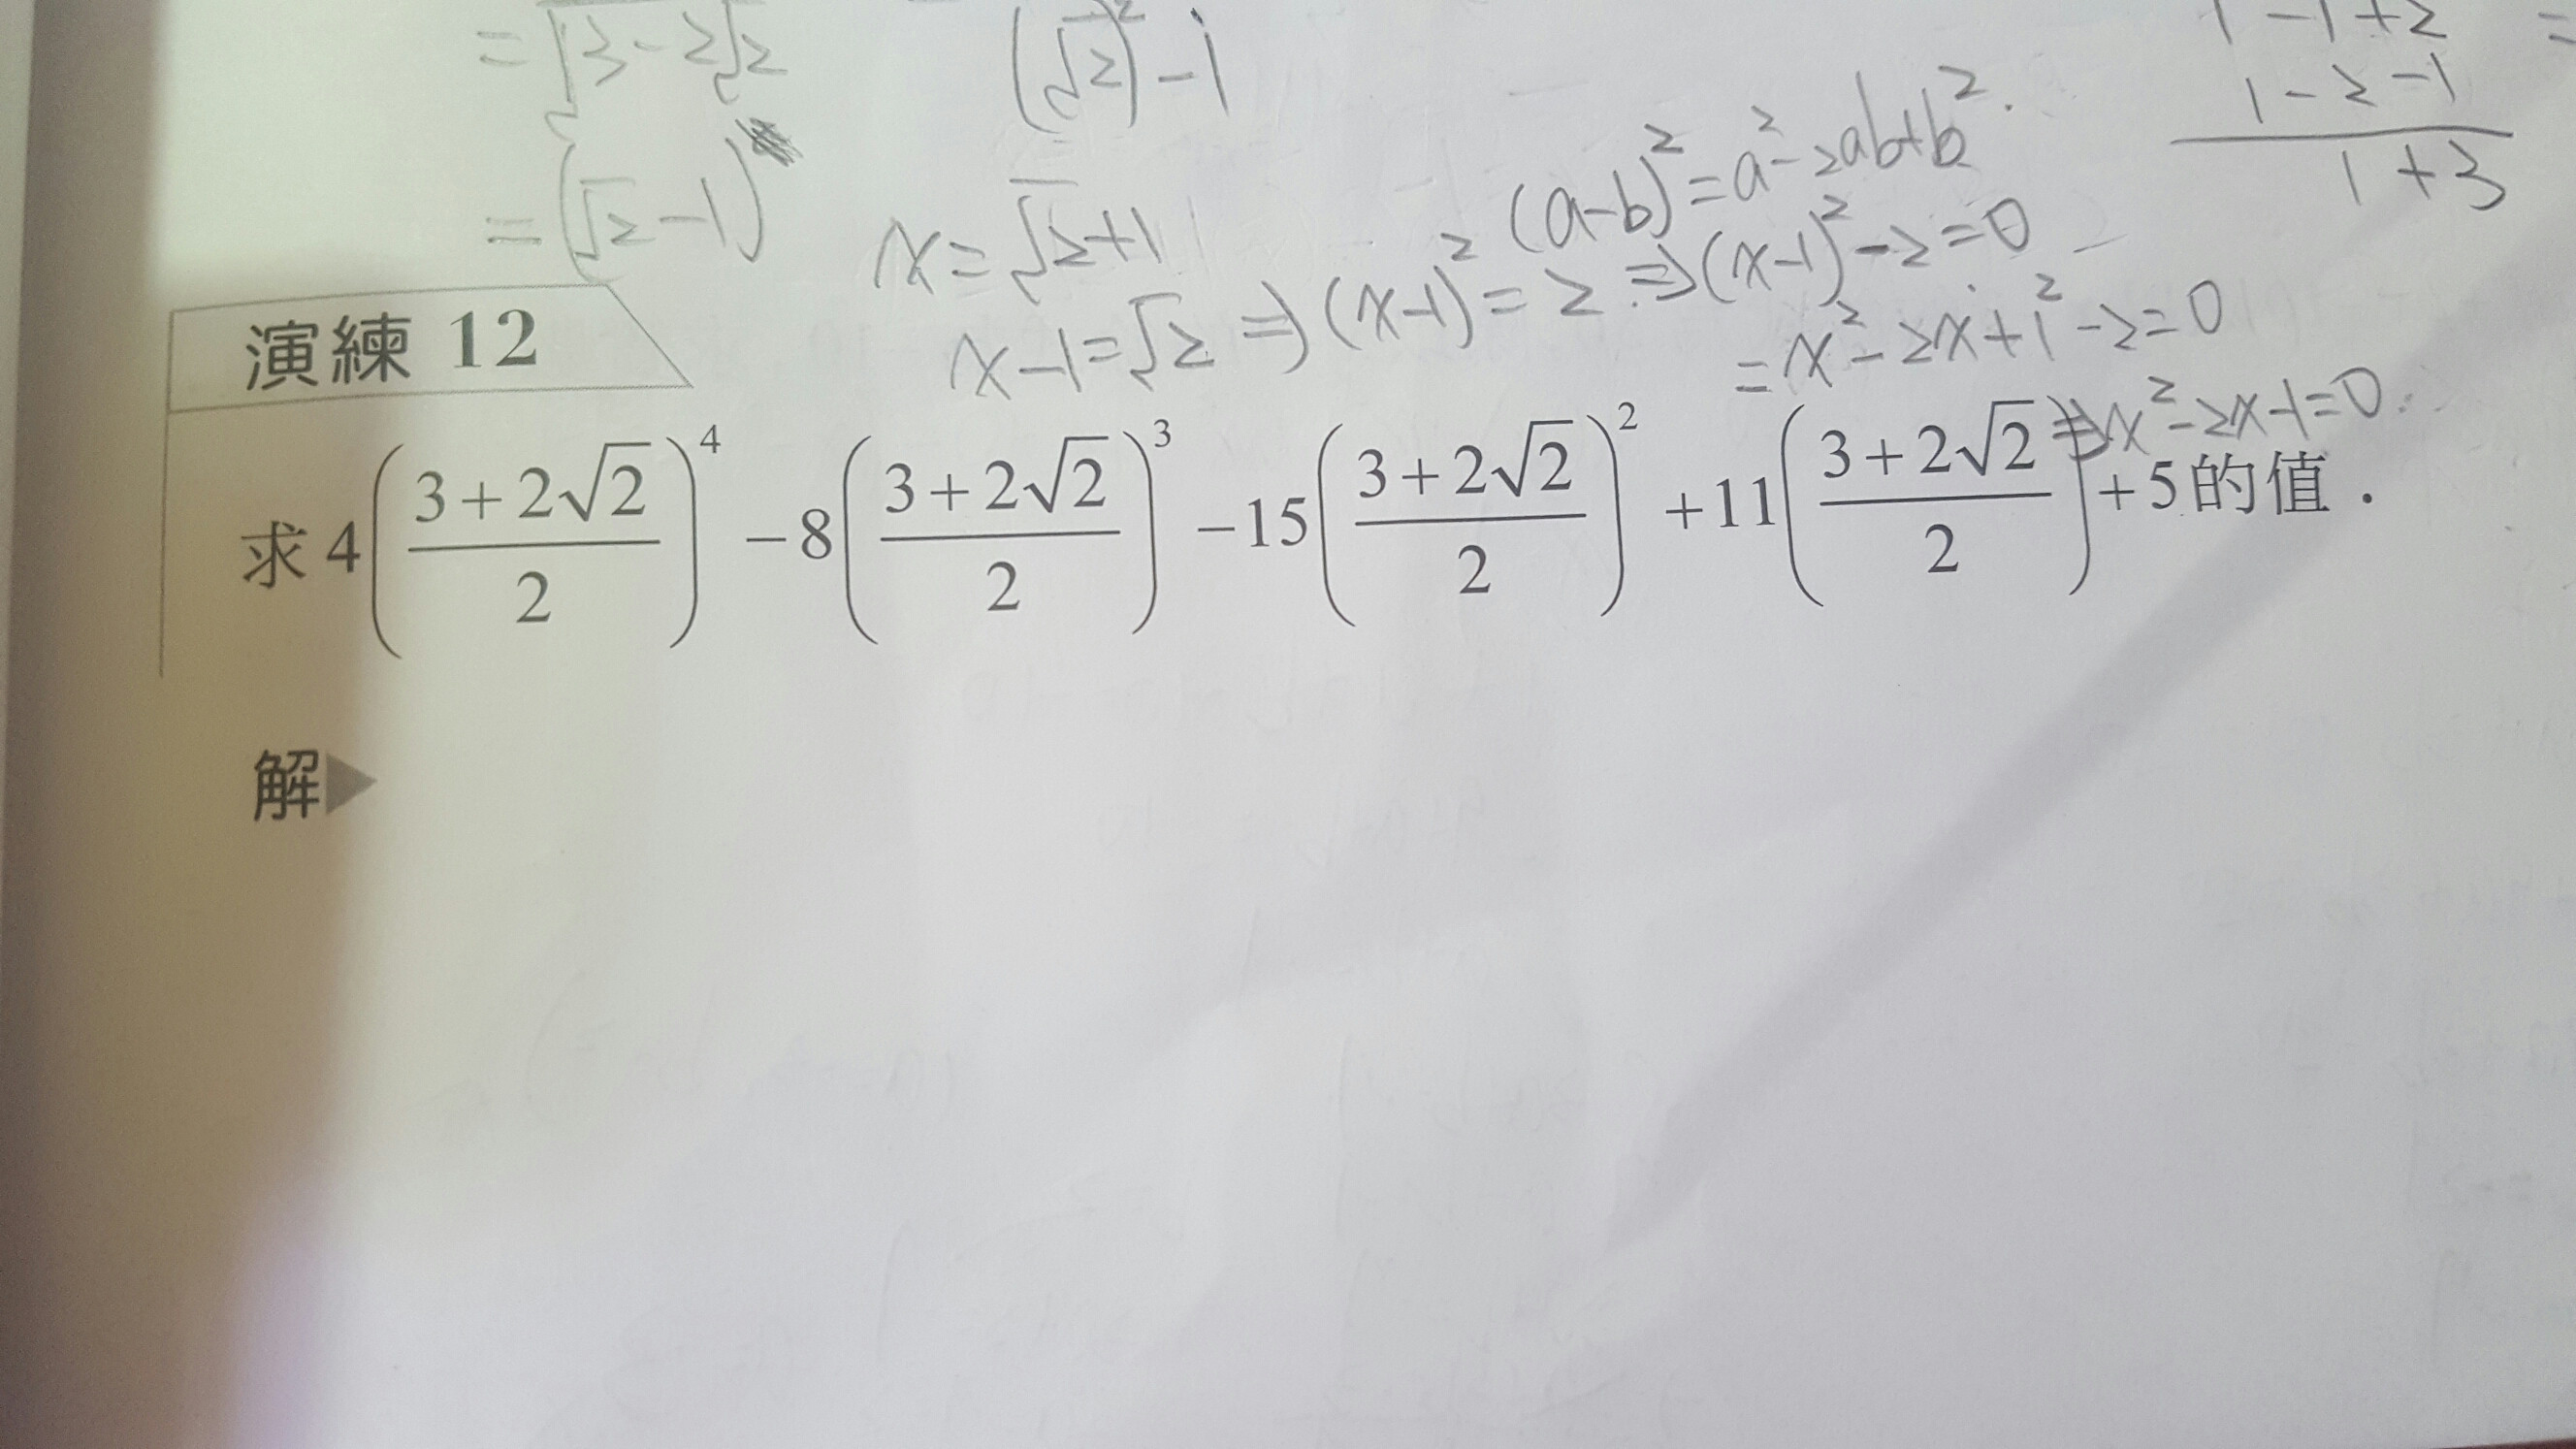 = √3-2√2
(√2)²-1
1-1+2
=
1-2-1
1+3
= (√2-1)
x=√2+1
(a-b)²=a²-2ab+b²
x-1=√2 ⇒ (x-1)²=2 ⇒ (x-1)²-2=0
= x²-2x+1²-2=0
⇒ x²-2x-1=0
演練 12
求 4((3+2√2)/2)⁴ -8((3+2√2)/2)³ -15((3+2√2)/2)² +11((3+2√2)/2)+5的值.
解▶